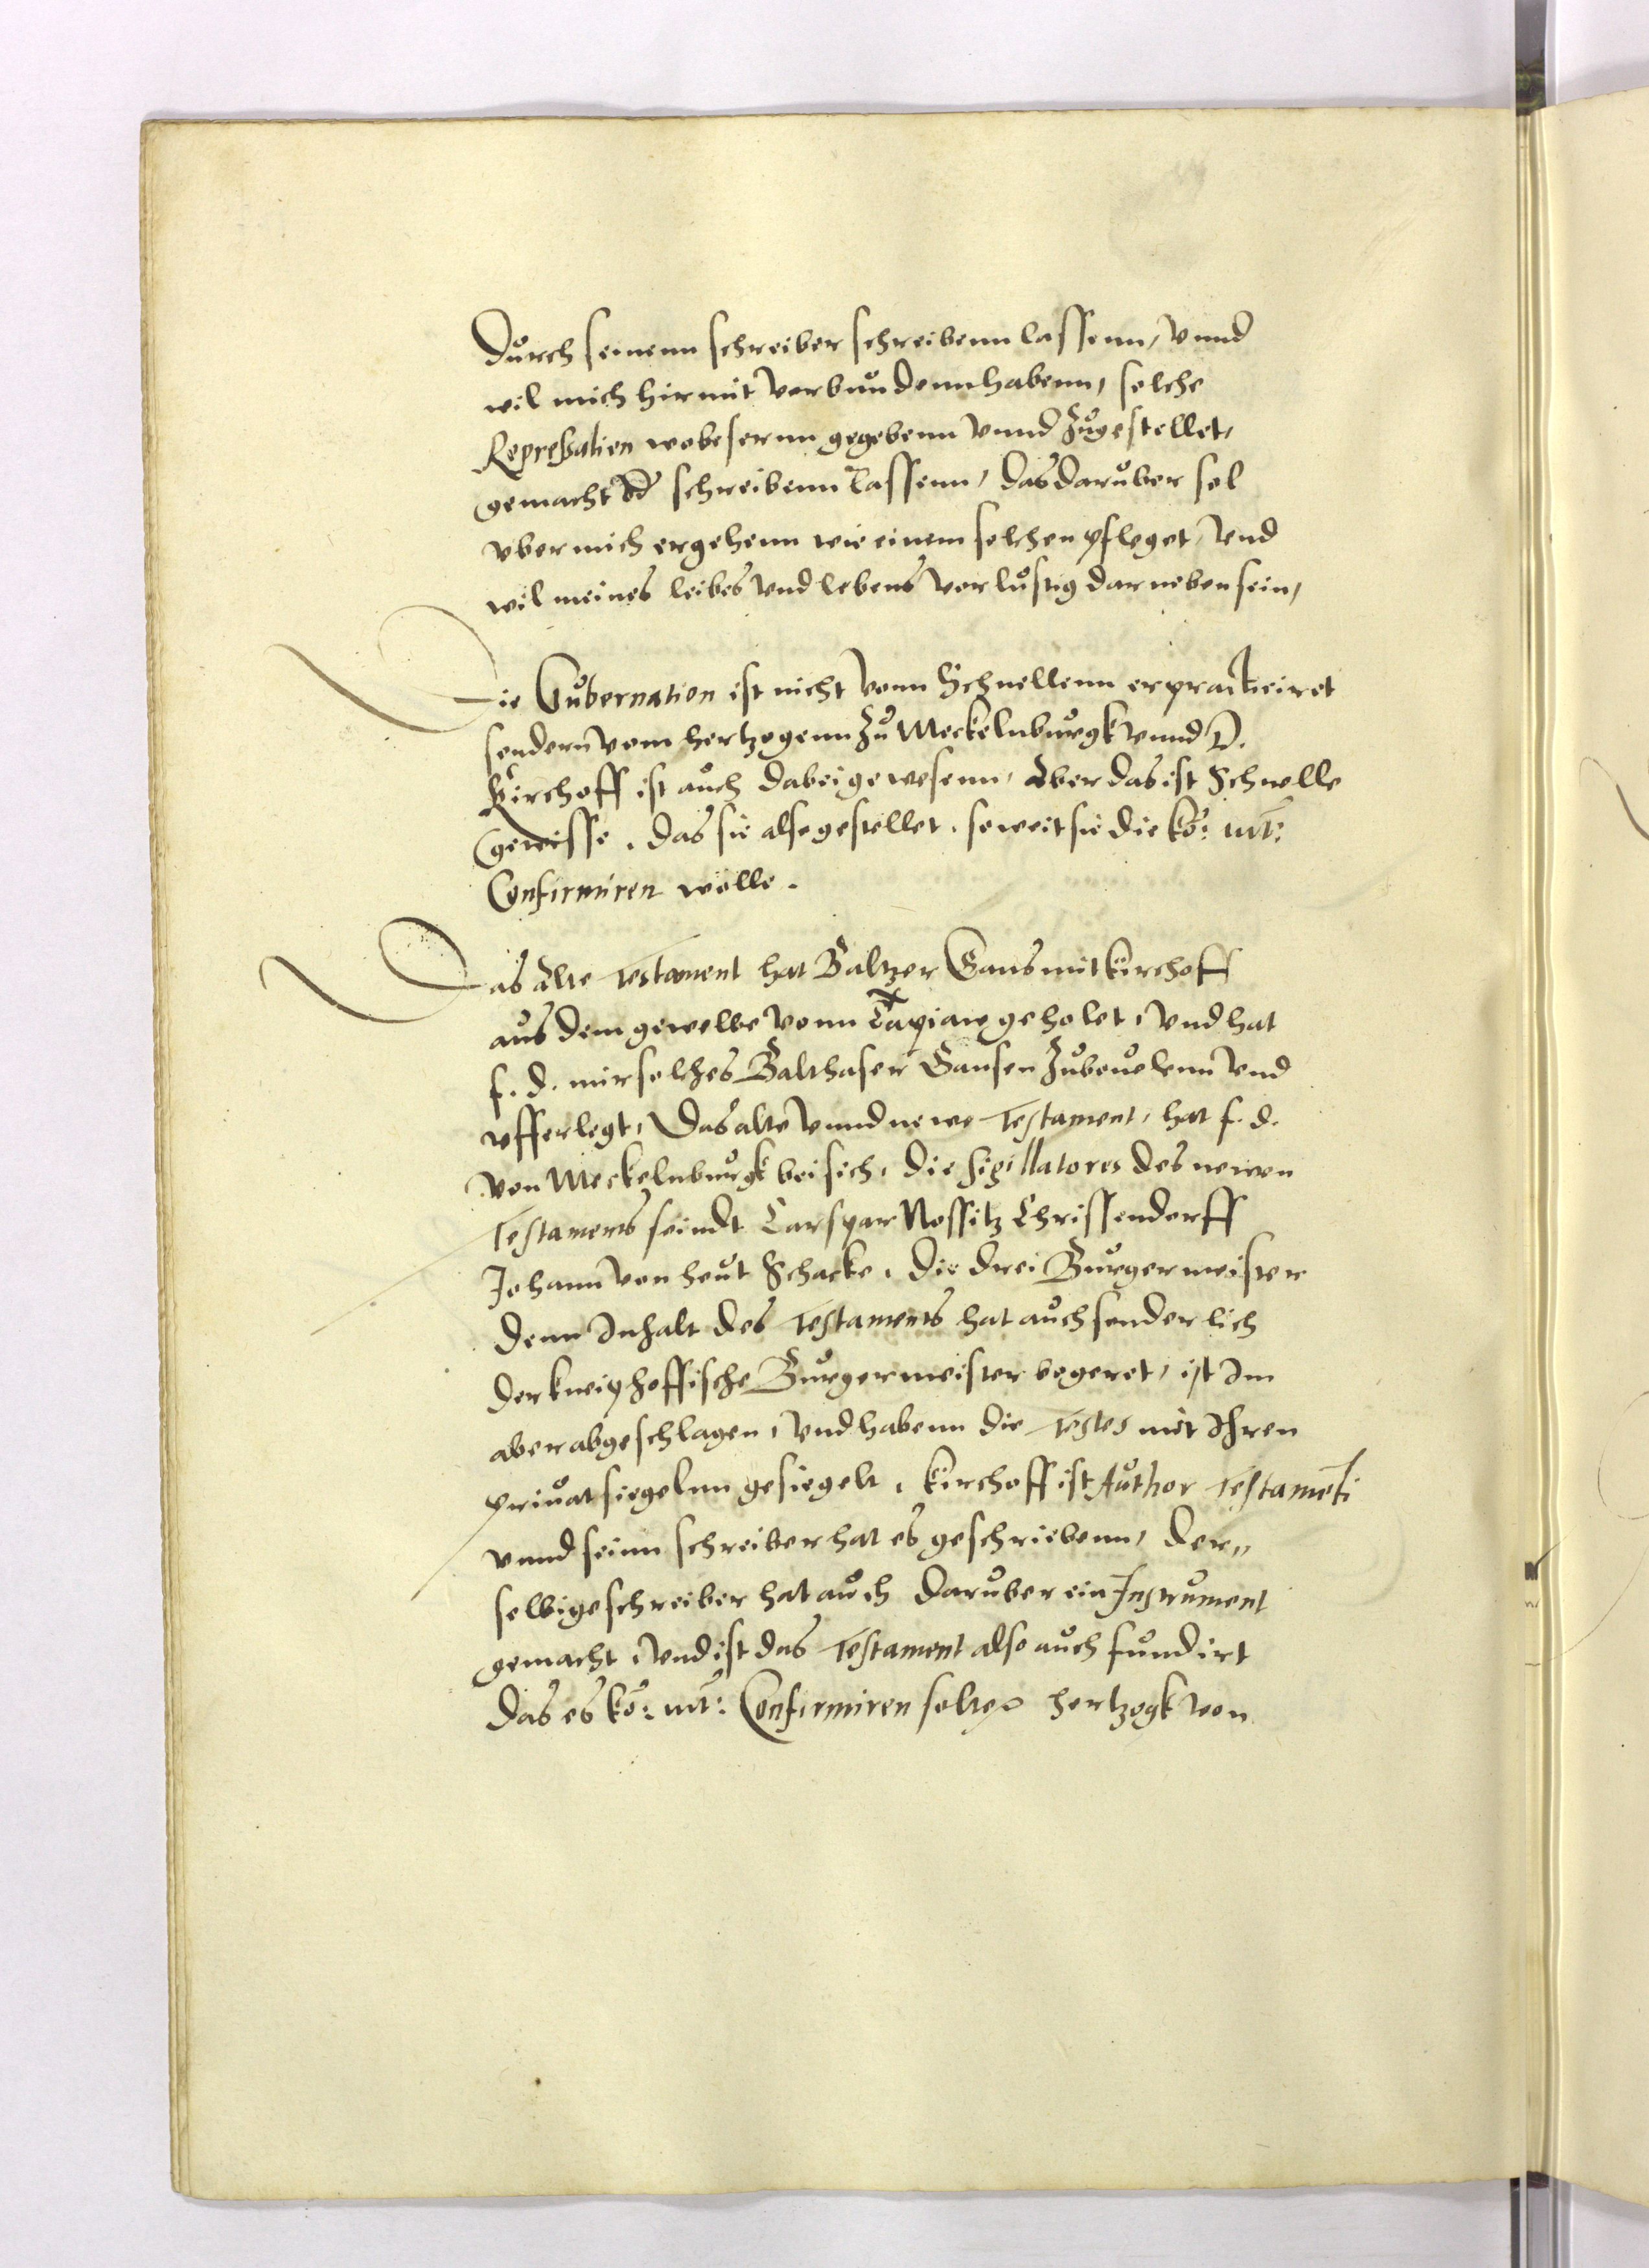 Durch seinenn schreiber schreibenn lassenn, vnnd
wil mich hirmit verbundenn habenn, solche
Repreßalien wobesernn gegebenn vnnd zugestellet,
gemacht od schreibenn lassenn, das daruber sol
vber mich ergehenn wie einem solchen pfleget, vnd
wil meines leibes vnd lebens verlustig darneben sein,
Die Gubernation ist nicht vonn Schnellenn erpracticiret
sondern vom hertzogenn zu Meckelnburgk vnnd D.
Kirchoff ist auch dabei gewesenn, Aber das ist Schnelle
gewisse, das sie also gestellet, soweit sie die ko: mt:
Confirmiren wolle.
Das Alte Testament hat Baltzer Gans mit Kirchoff
aus dem gewelbe vonn Tapiaw geholet, vnd hat
f. d. mir solches Balthaser Gansen zubeuelenn vnd
vfferlegt, Das alte vnnd newe Testament, hat f. d.
von Meckelnburgk bei sich, die sigillatores des newen
Testaments seindt Carspar Nostitz Chrissendorff
Johann von heut Schacke, die drei Burgermeister
denn Inhalt des Testaments hat auch sonderlich
der kneiphoffische Burgermeister begeret, ist Im
aber abgeschlagen, vnd habenn die Testes mit Ihren
priuat siegelnn gesiegelt, Kirchoff ist Author Testamenti
vnnd seinn schreiber hat es geschriebenn, der„
selbige schreiber hat auch daruber ein Instrument
gemacht, vnd ist das Testament also auch fundirt
das es ko: mt: Confirmiren solte, hertzogk von